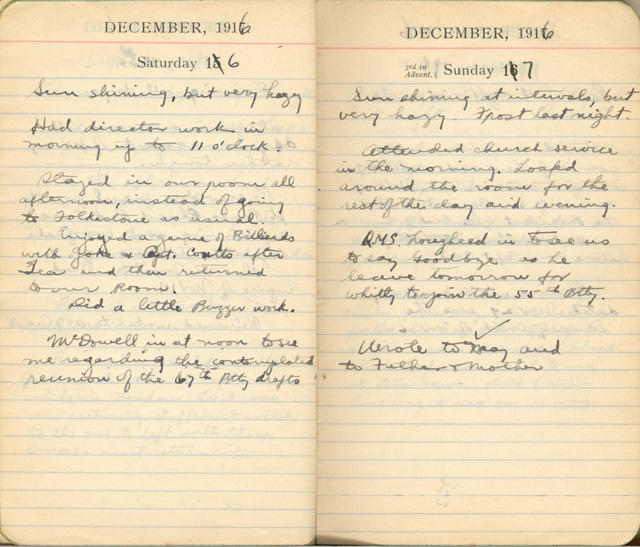 DECEMBER, 1916
Saturday 16
Sun shining, but very hazy
Had director work in
morning up to 11 o'clock.
Stayed in our room all
afternoon, instead of going
to Folkestone as usual.
Enjoyed a game of Billiards
with Jake + Sgt. Coutts after
Tea and then returned
to our Room.
Did a little Buzzer work.
McDowell in at noon to see
me regarding the contemplated
reunion of the 67th Btty drafts
DECEMBER, 1916
3rd in
Advent.
Sunday 17
Sun shining at intervals, but
very hazy. Frost last night.
Attended church service
in the morning. Loafed
around the room for the
rest of the day and evening.
Lougheed in to see us
to say Goodbye as he
leave tomorrow for
Whitly to join the 55th Btty.
Wrote to May and
to Father + Mother